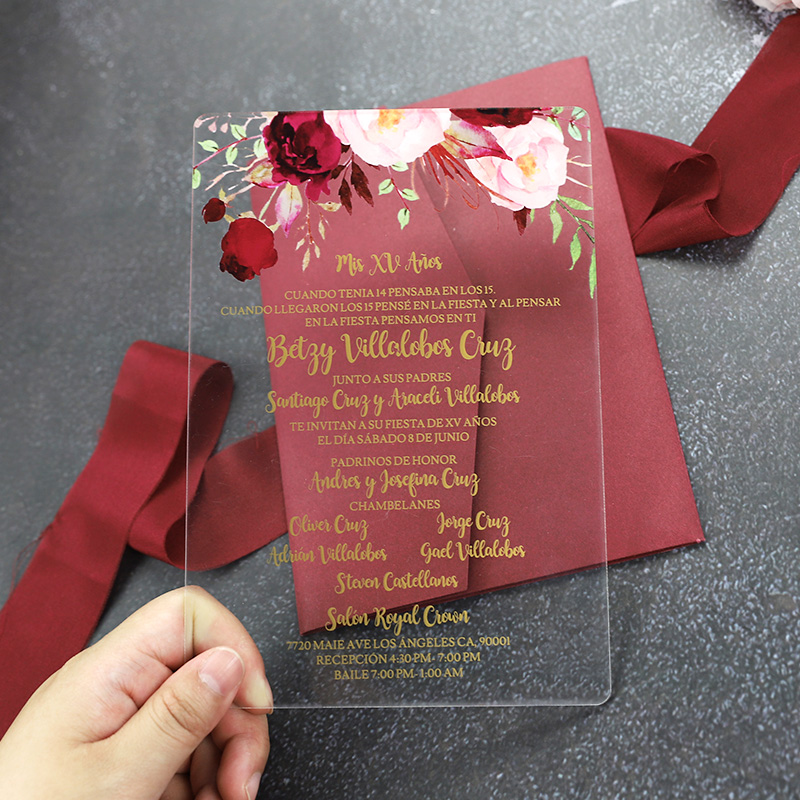 Mis XV Años
CUANDO TENIA 14 PENSABA EN LOS 15.
CUANDO LLEGARON LOS 15 PENSÉ EN LA FIESTA Y AL PENSAR
EN LA FIESTA PENSAMOS EN TI
Betzy Villalobos Cruz
JUNTO A SUS PADRES
Santiago Cruz y Araceli Villalobos
TE INVITAN A SU FIESTA DE XV AÑOS
EL DÍA SÁBADO 8 DE JUNIO
PADRINOS DE HONOR
Andres y Josefina Cruz
CHAMBELANES
Oliver Cruz Jorge Cruz
Adrián Villalobos Gael Villalobos
Steven Castellanos
Salón Royal Crown
7720 MAIE AVE LOS ÁNGELES CA, 90001
RECEPCIÓN 4:30 PM- 7:00 PM
BAILE 7:00 PM- 1:00 AM